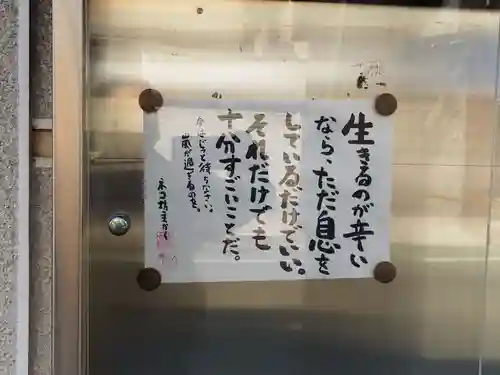 生きるのが辛い
なら、ただ息を
しているだけでいい。
それだけでも
十分すごいことだ。
今はじっと待ちなさい。
嵐が過ぎるのを。